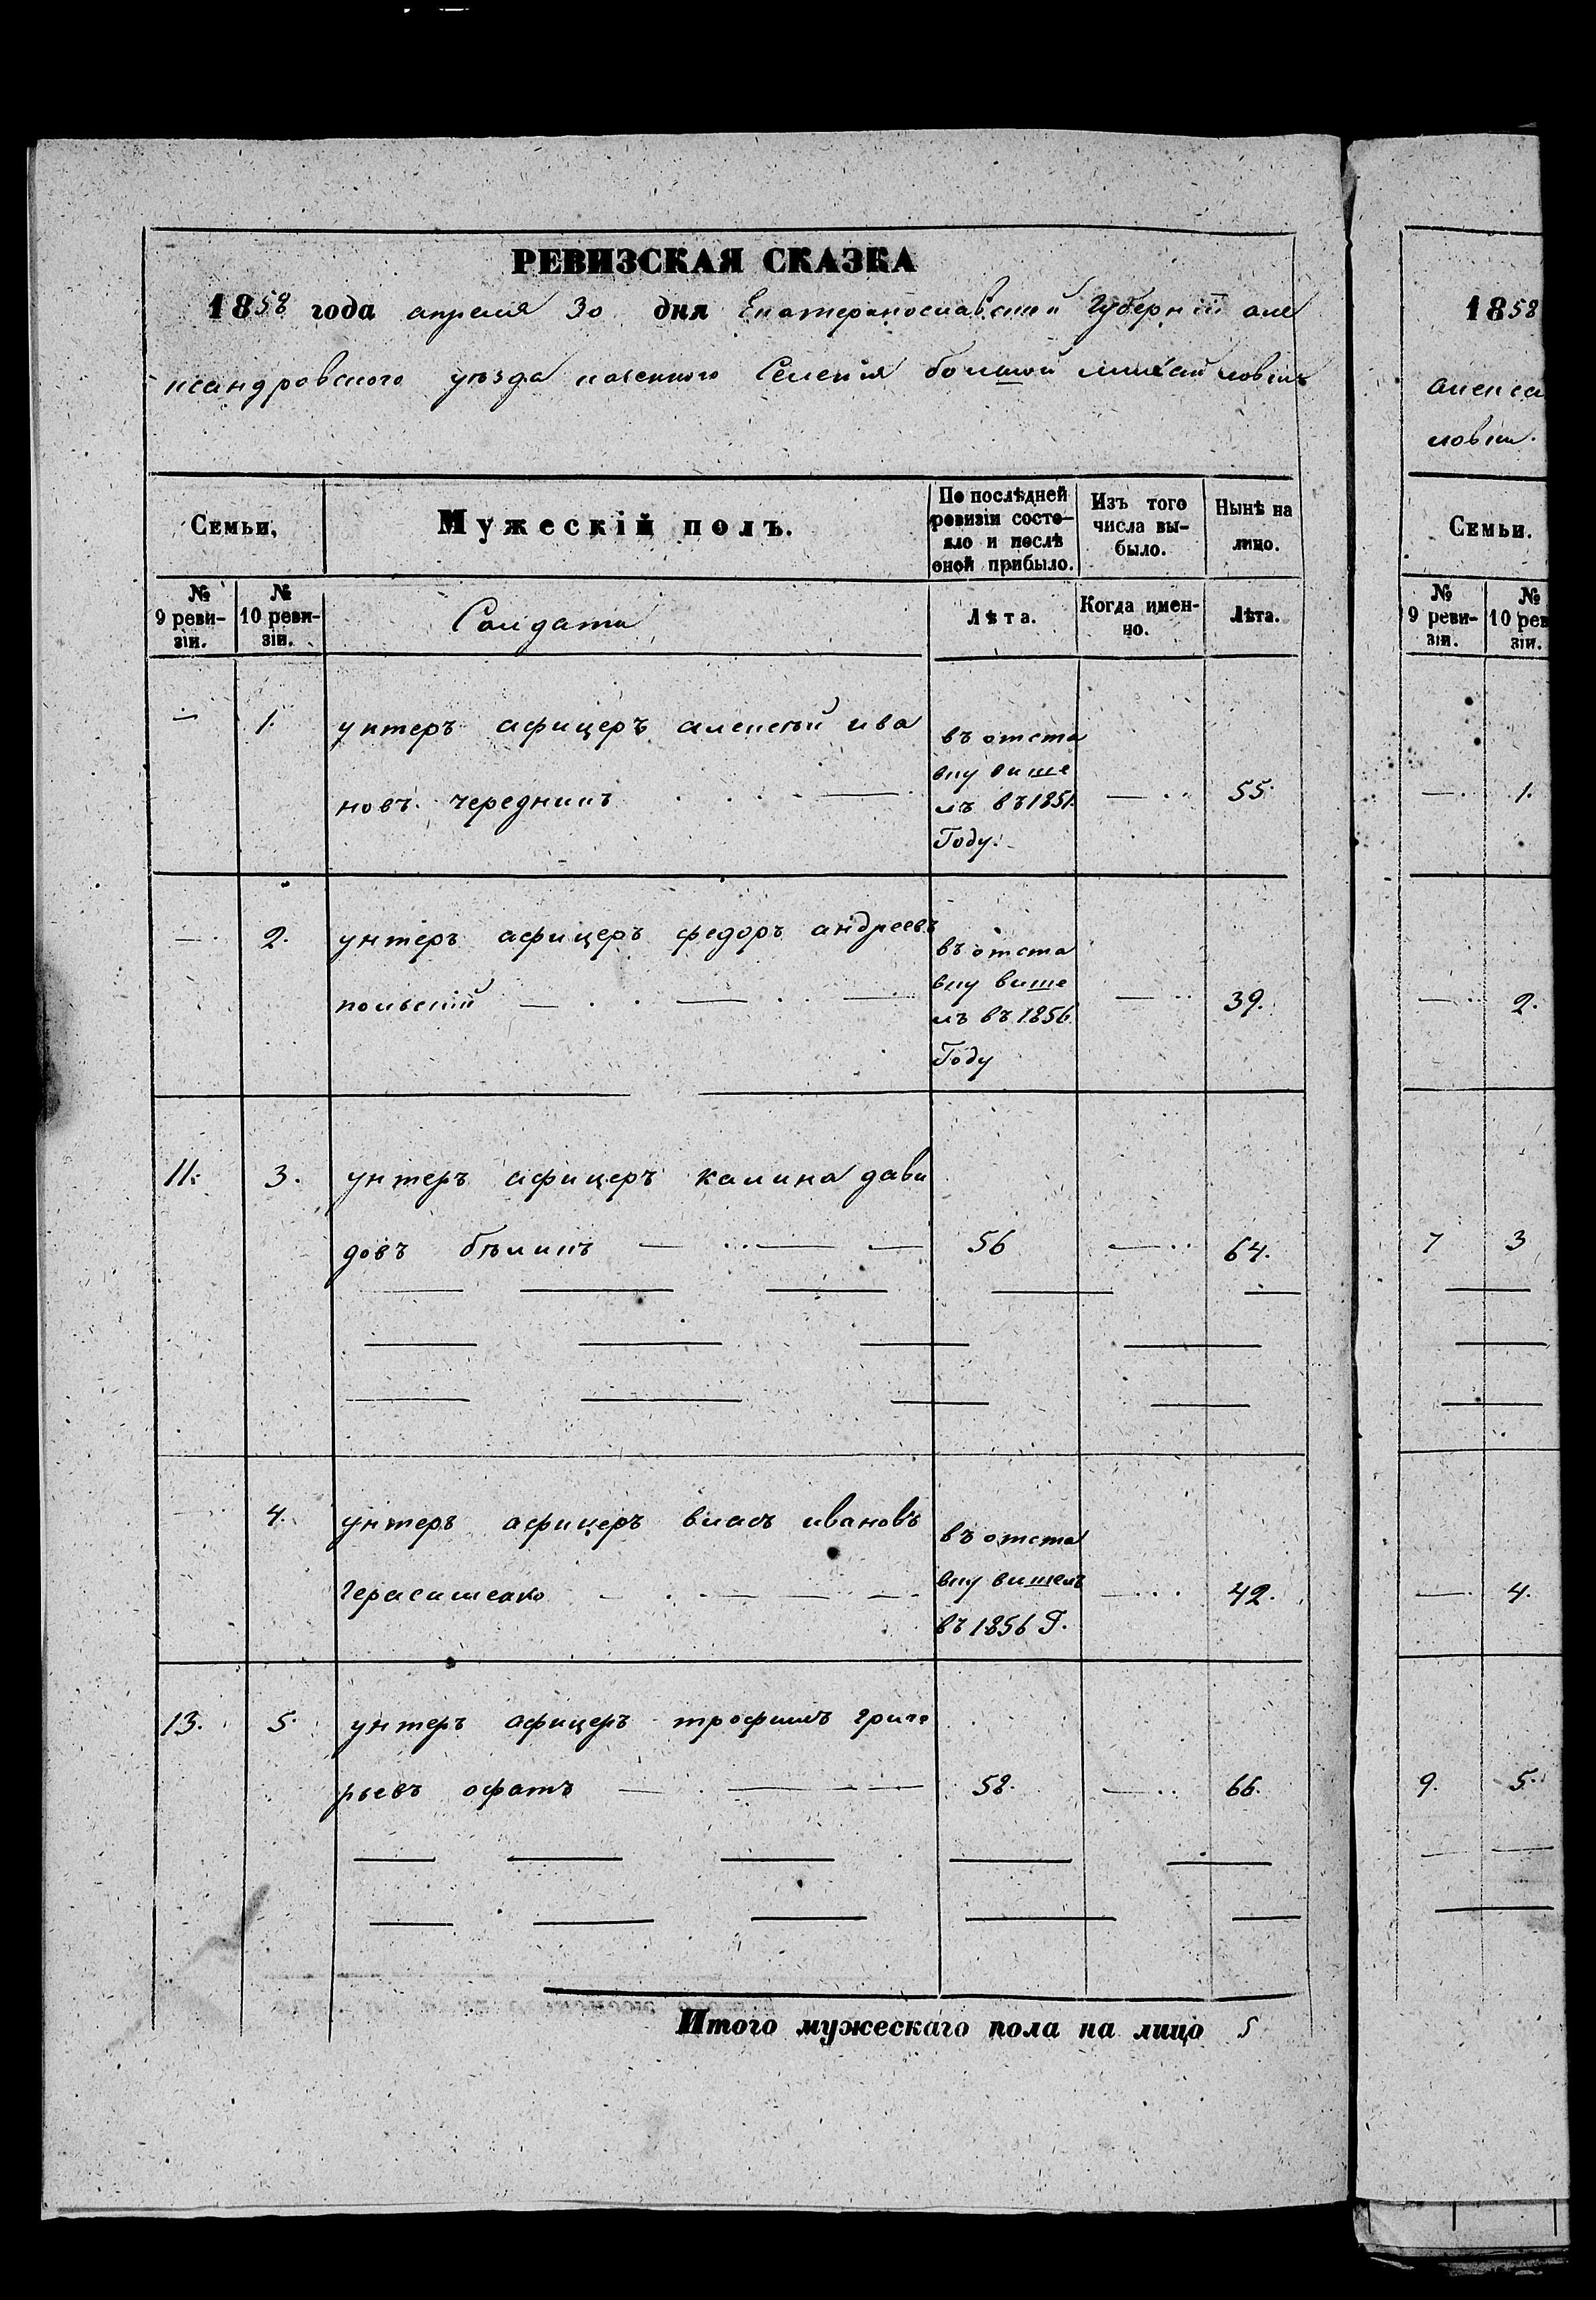 РЕВИЗСКАЯ СКАЗКА
1858 года апреля 30 дня Екатеринославской Губернiи але
ксандровского уѣзда казенного Селенiя большой михайловки
Семьи,
Мужескiй полъ.
По послѣдней ревизiи состояло и послѣ оной прибыло.
Изъ того числа выбыло.
Нынѣ на лицо.
№ 9 ревизiи.
№ 10 ревизiи.
Солдати
Лѣта.
Когда именно.
Лѣта.
— 1. унтеръ афицеръ алексѣй ива
новъ чередникъ — въ отста
вку више
лъ въ 1851
Году. — 55.
— 2. унтеръ афицеръ федоръ андреевъ
польскiй — въ отста
вку више
лъ въ 1856
Году — 39.
11. 3. унтеръ афицеръ калина дави
довъ бѣликъ — 56 — 64.
— 4. унтеръ афицеръ власъ ивановъ
Герасименко — въ отста
вку вишелъ
въ 1856 Г. — 42.
13. 5. унтеръ афицеръ трофимъ григо
рьевъ офатъ — 58. — 66.
Итого мужескаго пола на лицо 5
1858
алекса
ловки.
Семьи.
№ 9 ревизiи.
№ 10 рев
зiи.
— 1.
— 2.
7 3
— 4.
9. 5.